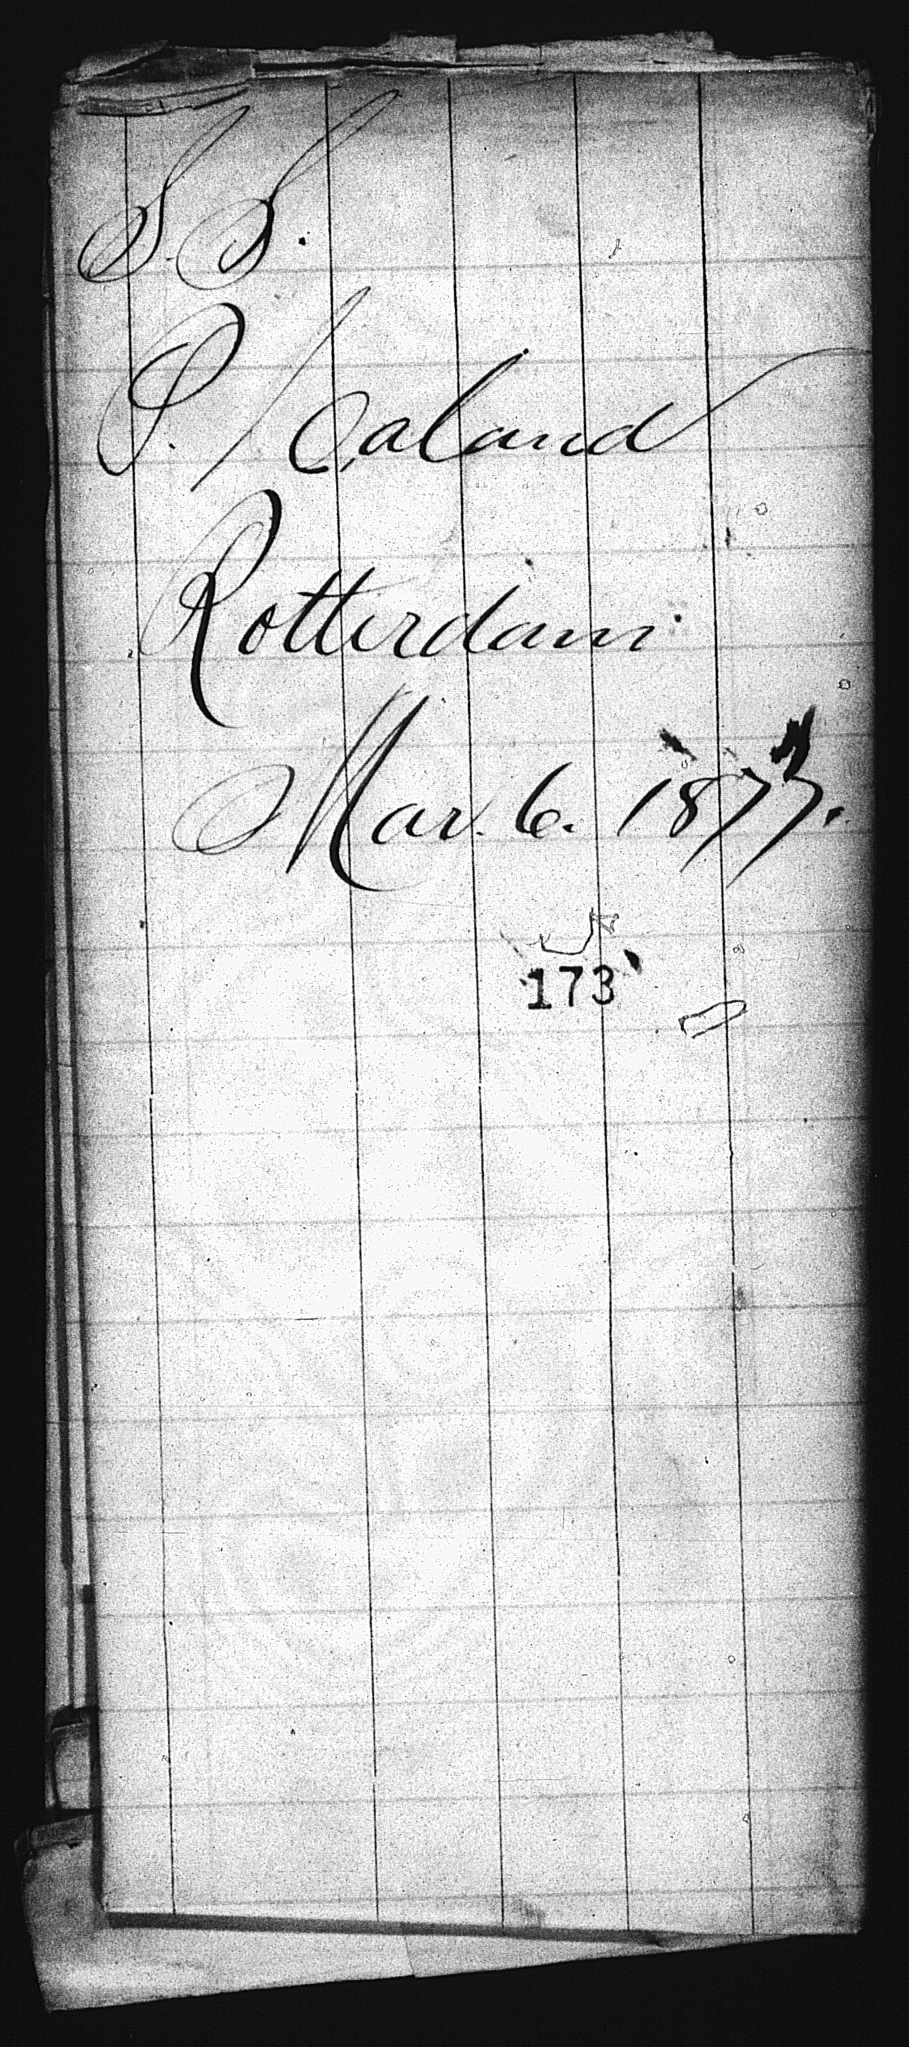 S. S.
P. Caland
Rotterdam.
Mar. 6. 1877.
173